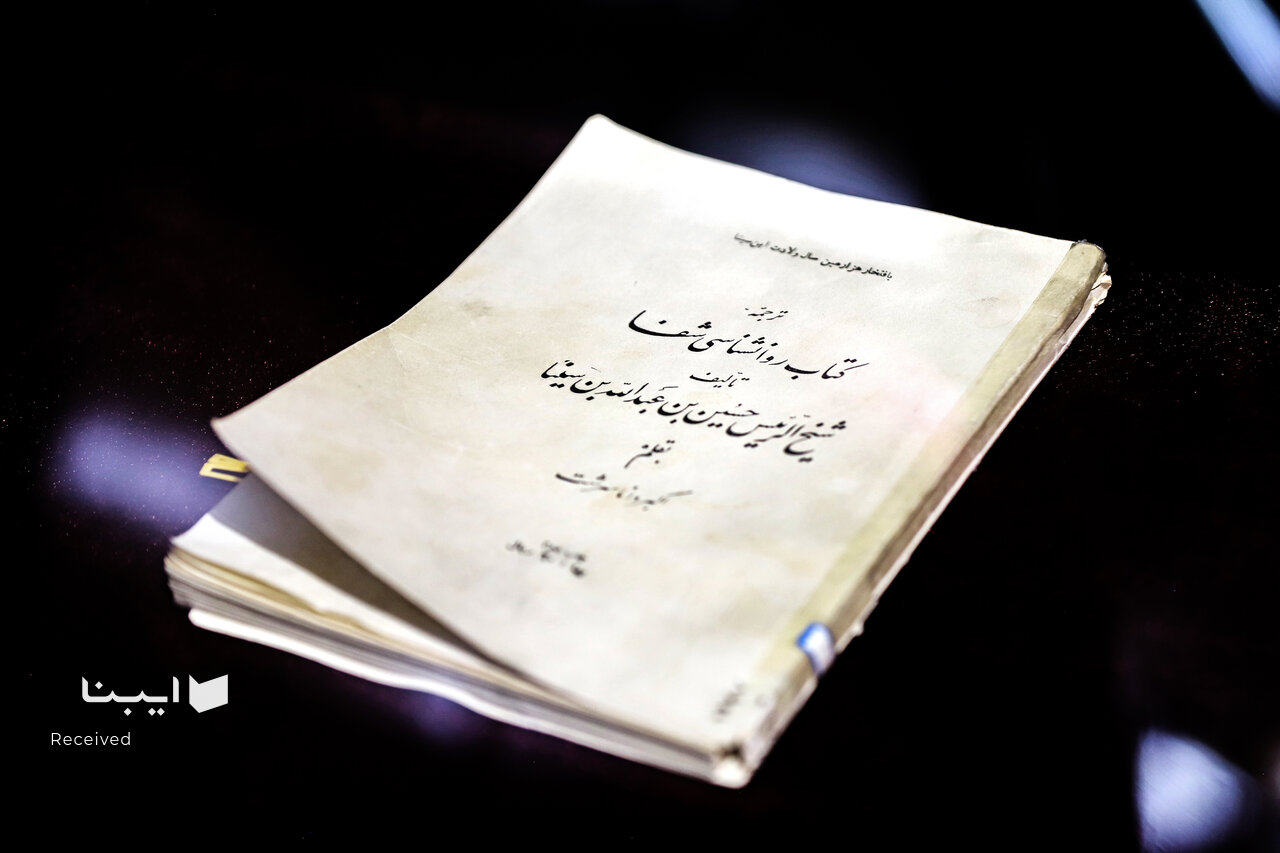 بافتخار هزارمین سال ولادت ابن سینا
ترجمهٔ
کتاب روانشناسی شفا
تألیف
شیخ الرئیس حسین بن عبدالله بن سینا
بقلم
اکبر دانا سرشت
ایبنا
Received